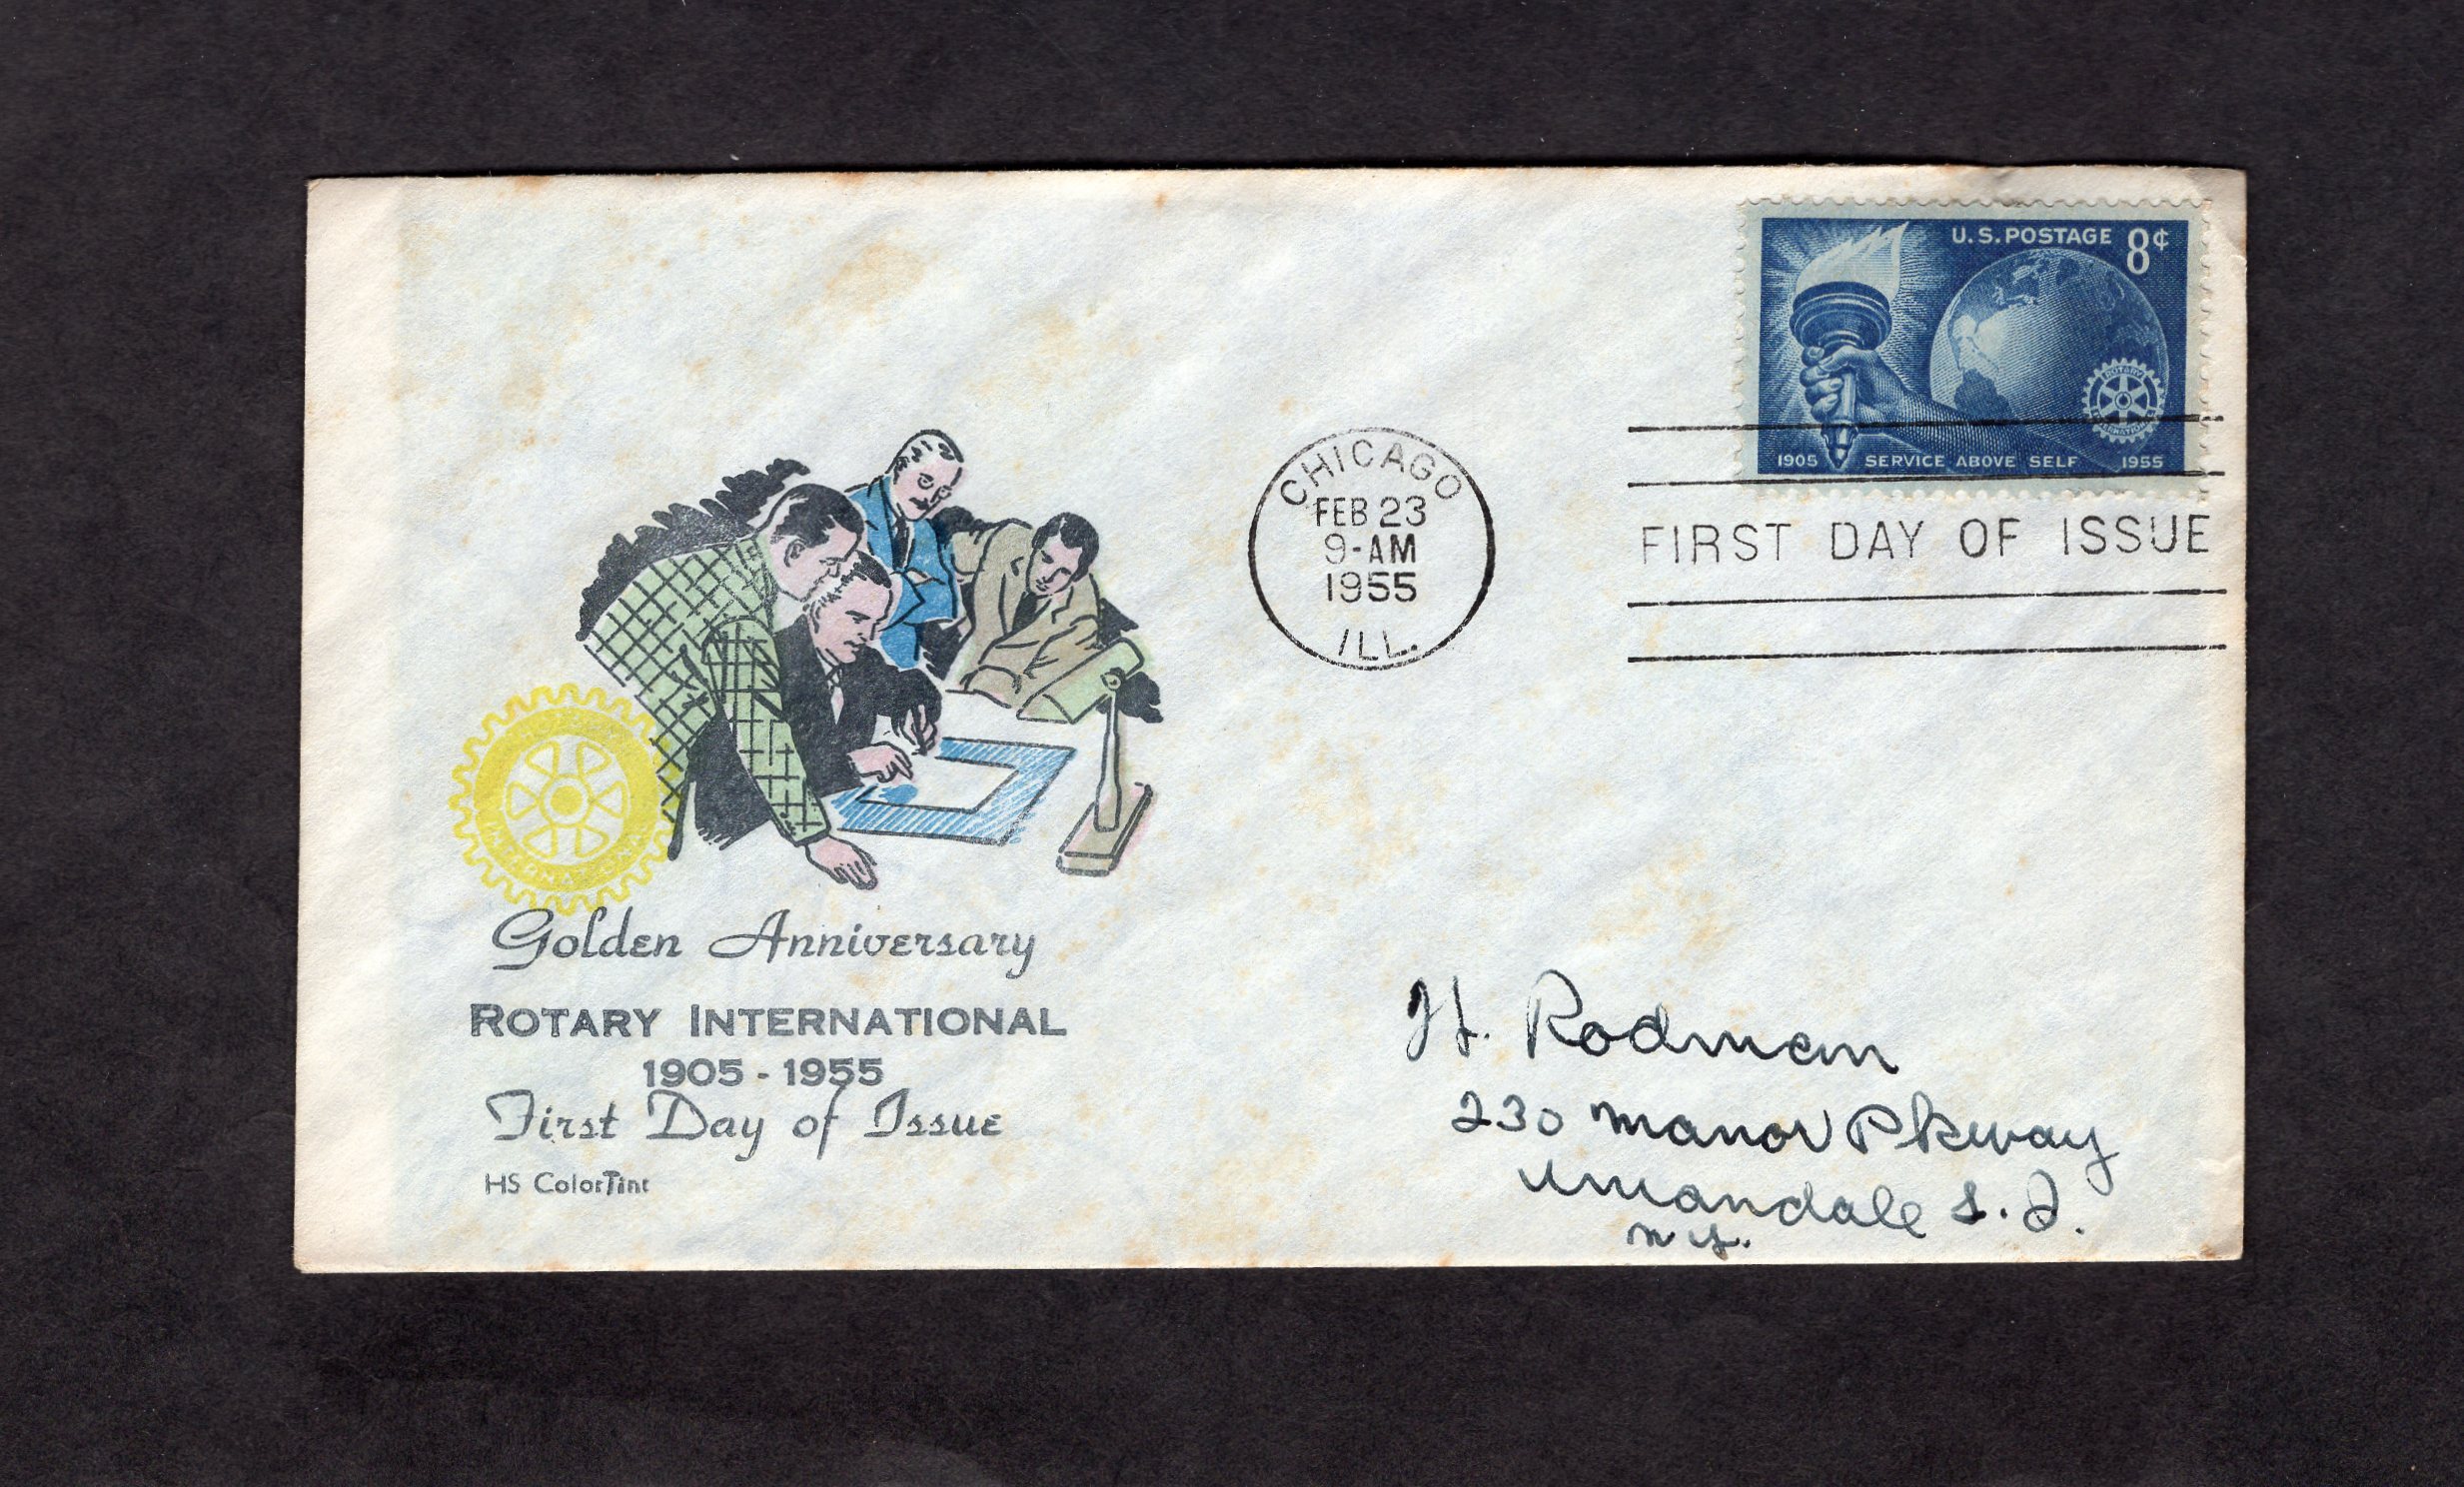 U.S. POSTAGE 8¢
ROTARY
INTERNATIONAL
1905 SERVICE ABOVE SELF 1955
CHICAGO
FEB 23
9-AM
1955
ILL.
FIRST DAY OF ISSUE
INTERNATIONAL
Golden Anniversary
ROTARY INTERNATIONAL
1905 - 1955
First Day of Issue
HS ColorTint
H. Rodman
230 Manor Pkway
L. I.
N Y.